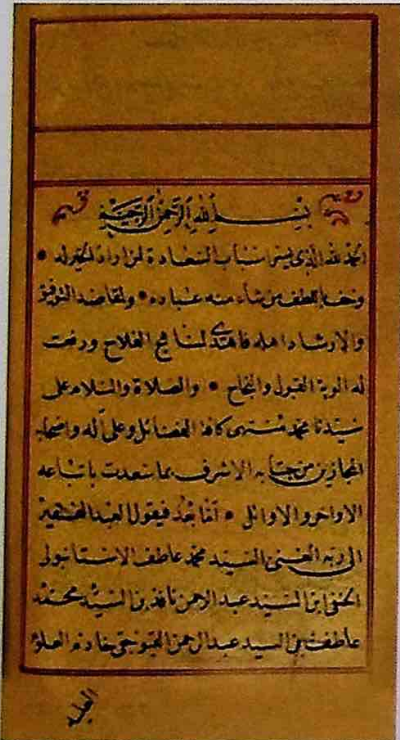 بسم الله الرحمن الرحيم
الحمد لله الذي يسر اسباب السعادة لمن اراد الخير له •
وخص باللطف من شاء منه عباده • ولقاصد التوفيق
والارشاد اهله فاهتدى لمناهج الفلاح ورفعت
له الوية القبول والنجاح • والصلاة والسلام على
سيدنا محمد منتهى كافة الفضائل وعلى اله واصحابه
المجازين من جنابه الاشرف بما سعدت باتباعه
الاواخر والاوائل • اما بعد فيقول العبد الفقير
الى ربه الغنى السيد محمد عاطف الاستانبولى
الحنفى ابن السيد عبد الرحمن نافذ بن السيد محمد
عاطف بن السيد عبد الرحمن القبوجى خادم العلوم